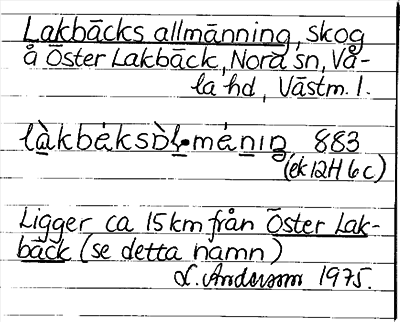 Lakbäcks allmänning, skog
å Öster Lakbäck, Nora sn, Vå-
la hd, Västm. l.
làkbèksàl·mèniŋ, 883
(ek 12H 6c)
Ligger ca 15 km från Öster Lak-
bäck (se detta namn)
L. Anderson 1975.